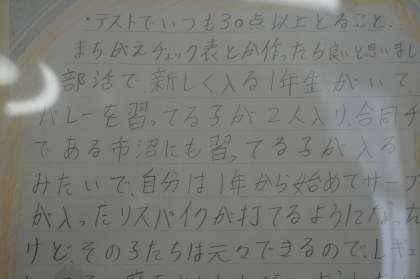 ・テストでいつも30点以上とること、
まちがえチェック表とか作ったら良いと思いまし
部活で新しく入る1年生がいて、
バレーを習ってる子が2人入り、合同チ
である市沼にも習ってる子が入る
みたいで、自分は1年から始めてサーブ
が入ったりスパイクが打てるようになった
けど、その子たちは元々できるので、レギ